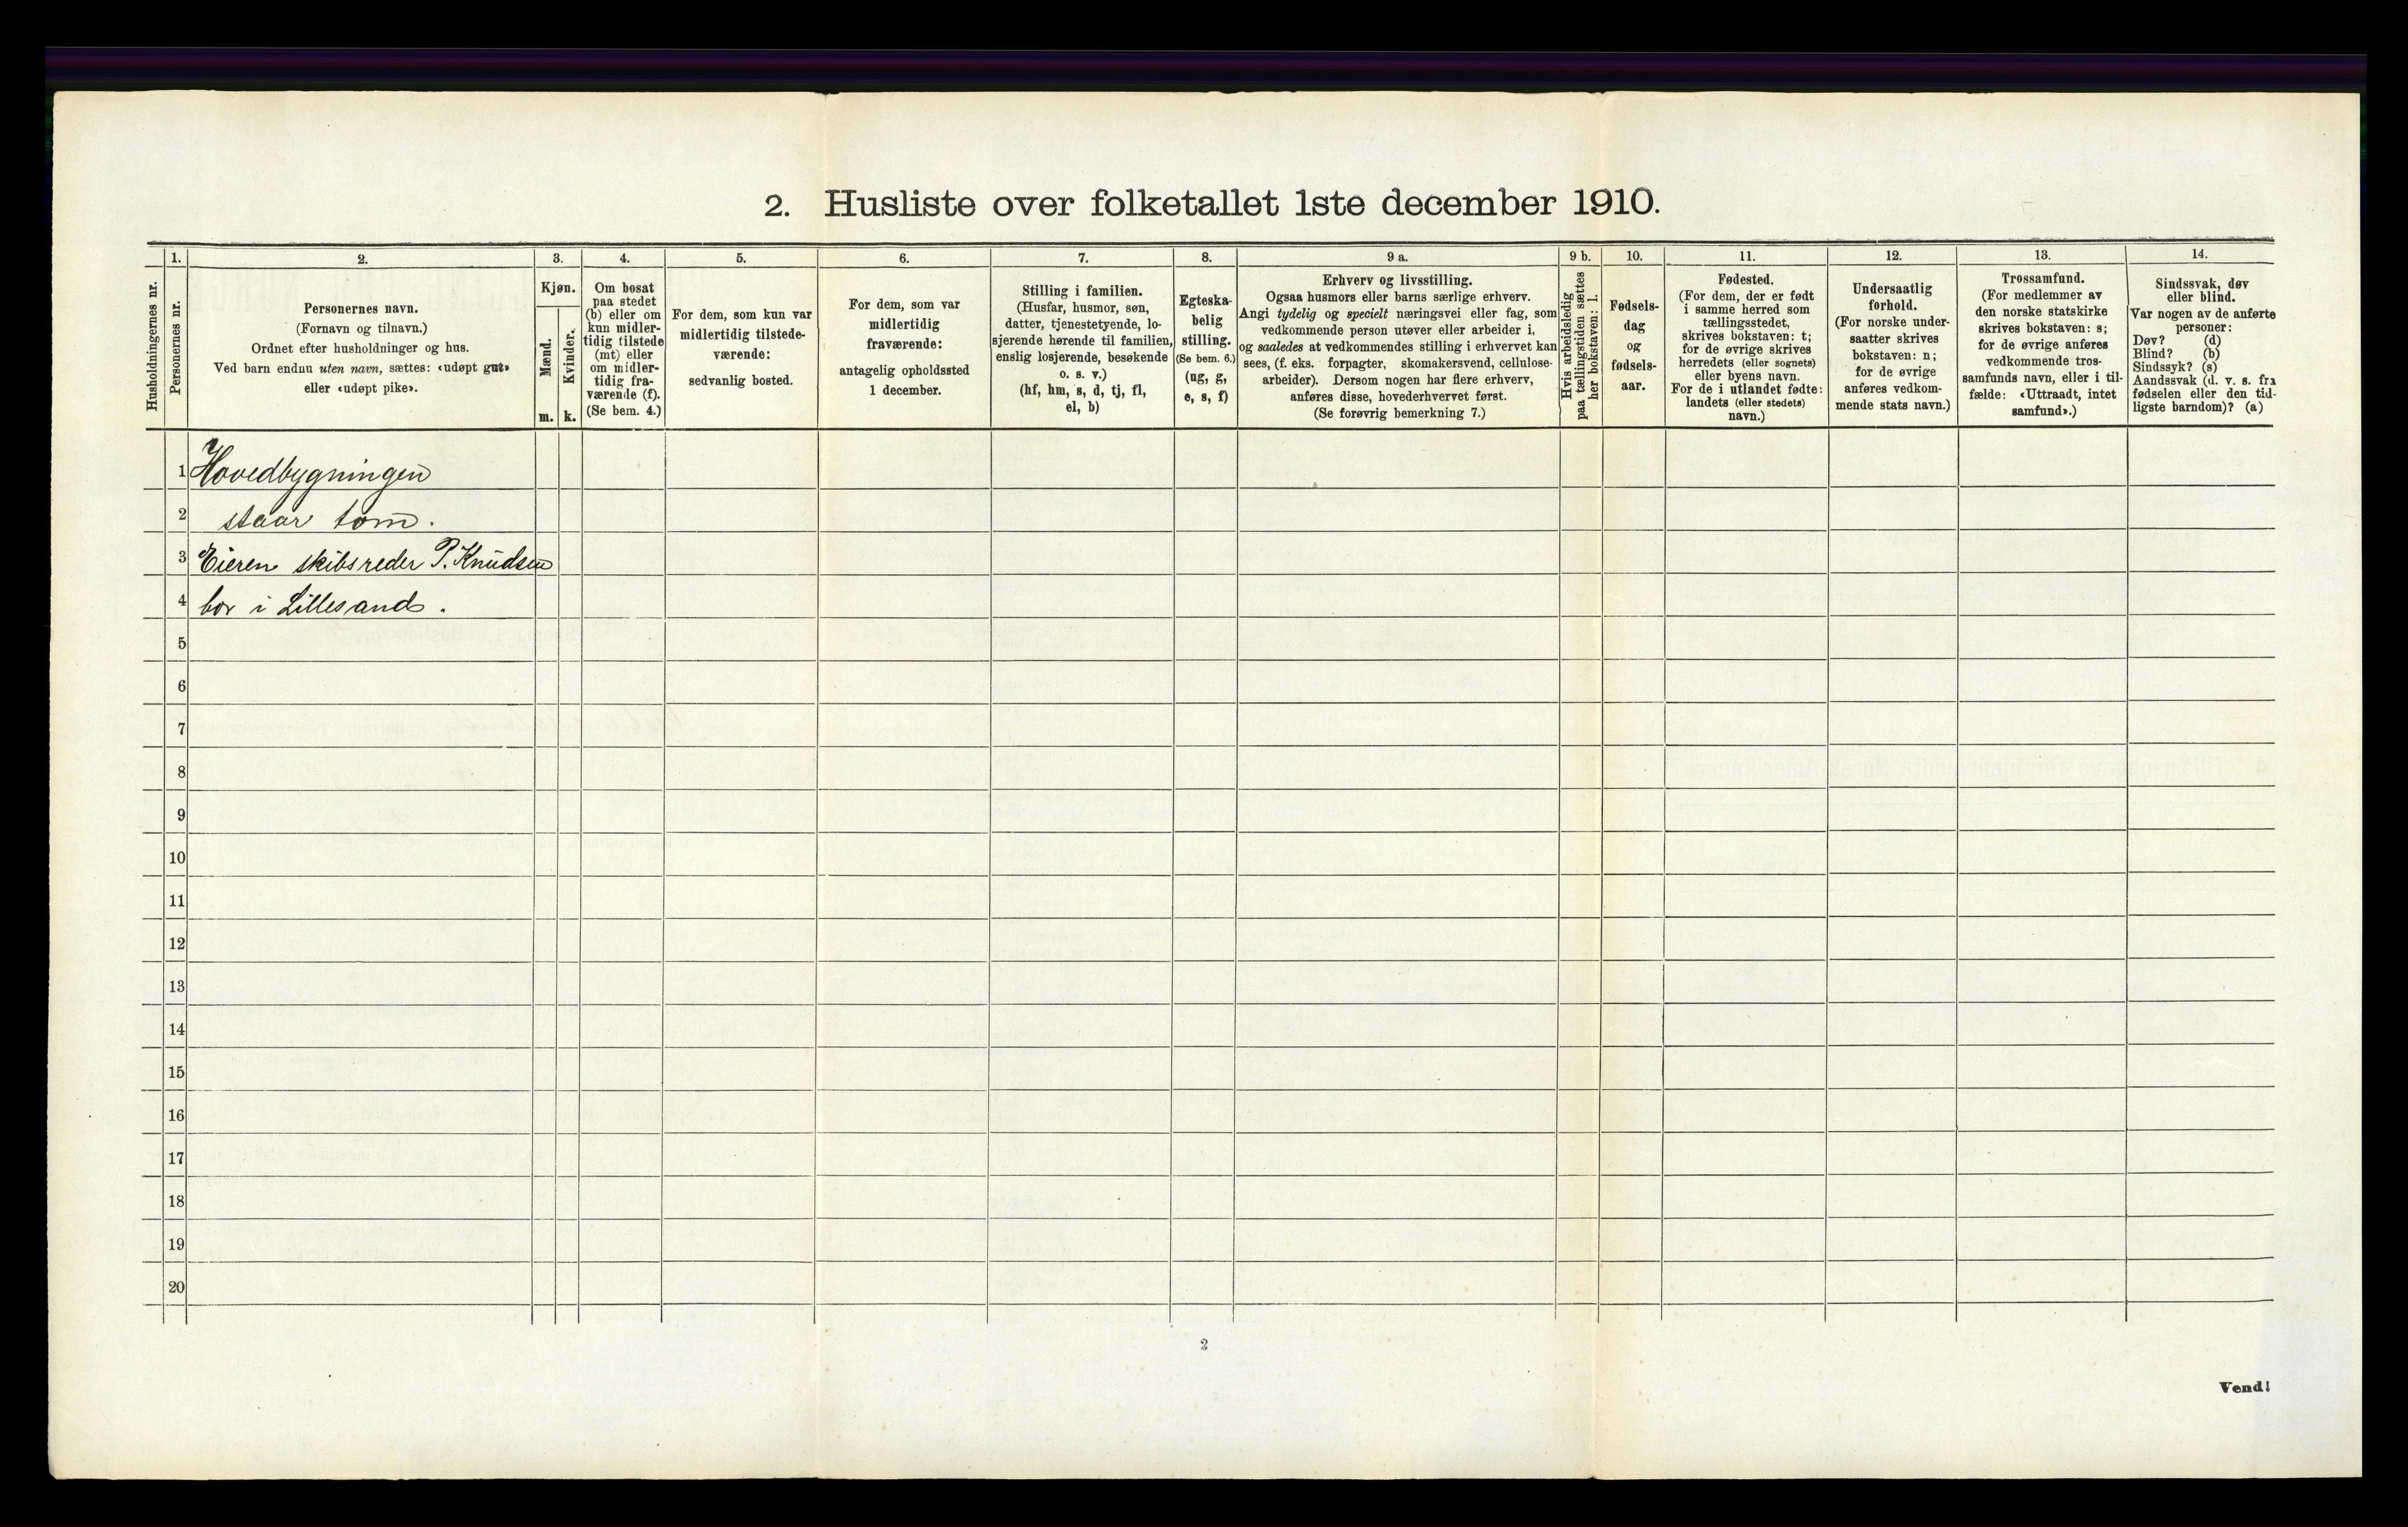 2. Husliste over folketallet 1ste december 1910.
Husholdningernes nr.
1.
Personernes nr.
2.
Personernes navn.
(Fornavn og tilnavn.)
Ordnet efter husholdninger og hus.
Ved barn endnu uten navn, sættes: «udøpt gut»
eller «udøpt pike».
3.
Kjøn.
Mænd.
m.
Kvinder.
k.
4.
Om bosat
paa stedet
(b) eller om
kun midler-
tidig tilstede
(mt) eller
om midler-
tidig fra-
værende (f).
(Se bem. 4.)
5.
For dem, som kun var
midlertidig tilstede-
værende:
sedvanlig bosted.
6.
For dem, som var
midlertidig
fraværende:
antagelig opholdssted
1 december.
7.
Stilling i familien.
(Husfar, husmor, søn,
datter, tjenestetyende, lo-
sjerende hørende til familien,
enslig losjerende, besøkende
o. s. v.)
(hf, hm, s, d, tj, fl,
el, b)
8.
Egteska-
belig
stilling.
(Se bem. 6.)
(ug, g,
e, s, f)
9 a.
Erhverv og livsstilling.
Ogsaa husmors eller barns særlige erhverv.
Angi tydelig og specielt næringsvei eller fag, som
vedkommende person utøver eller arbeider i,
og saaledes at vedkommendes stilling i erhvervet kan
sees, (f. eks. forpagter, skomakersvend, cellulose-
arbeider). Dersom nogen har flere erhverv,
anføres disse, hovederhvervet først.
(Se forøvrig bemerkning 7.)
9 b.
Hvis arbeidsledig
paa tællingstiden sættes
her bokstaven: l.
10.
Fødsels-
dag
og
fødsels-
aar.
11.
Fødested.
(For dem, der er født
i samme herred som
tællingsstedet,
skrives bokstaven: t;
for de øvrige skrives
herredets (eller sognets)
eller byens navn.
For de i utlandet fødte:
landets (eller stedets)
navn.)
12.
Undersaatlig
forhold.
(For norske under-
saatter skrives
bokstaven: n;
for de øvrige
anføres vedkom-
mende stats navn.)
13.
Trossamfund.
(For medlemmer av
den norske statskirke
skrives bokstaven: s;
for de øvrige anføres
vedkommende tros-
samfunds navn, eller i til-
fælde: «Uttraadt, intet
samfund».)
14.
Sindssvak, døv
eller blind.
Var nogen av de anførte
personer:
Døv? (d)
Blind? (b)
Sindssyk? (s)
Aandssvak (d. v. s. fra
fødselen eller den tid-
ligste barndom)? (a)
1 Hovedbygningen
2 staar tom.
3 Eieren skibsreder P. Knudsen
4 bor i Lillesand.
5
6
7
8
9
10
11
12
13
14
15
16
17
18
19
20
2
Vend!